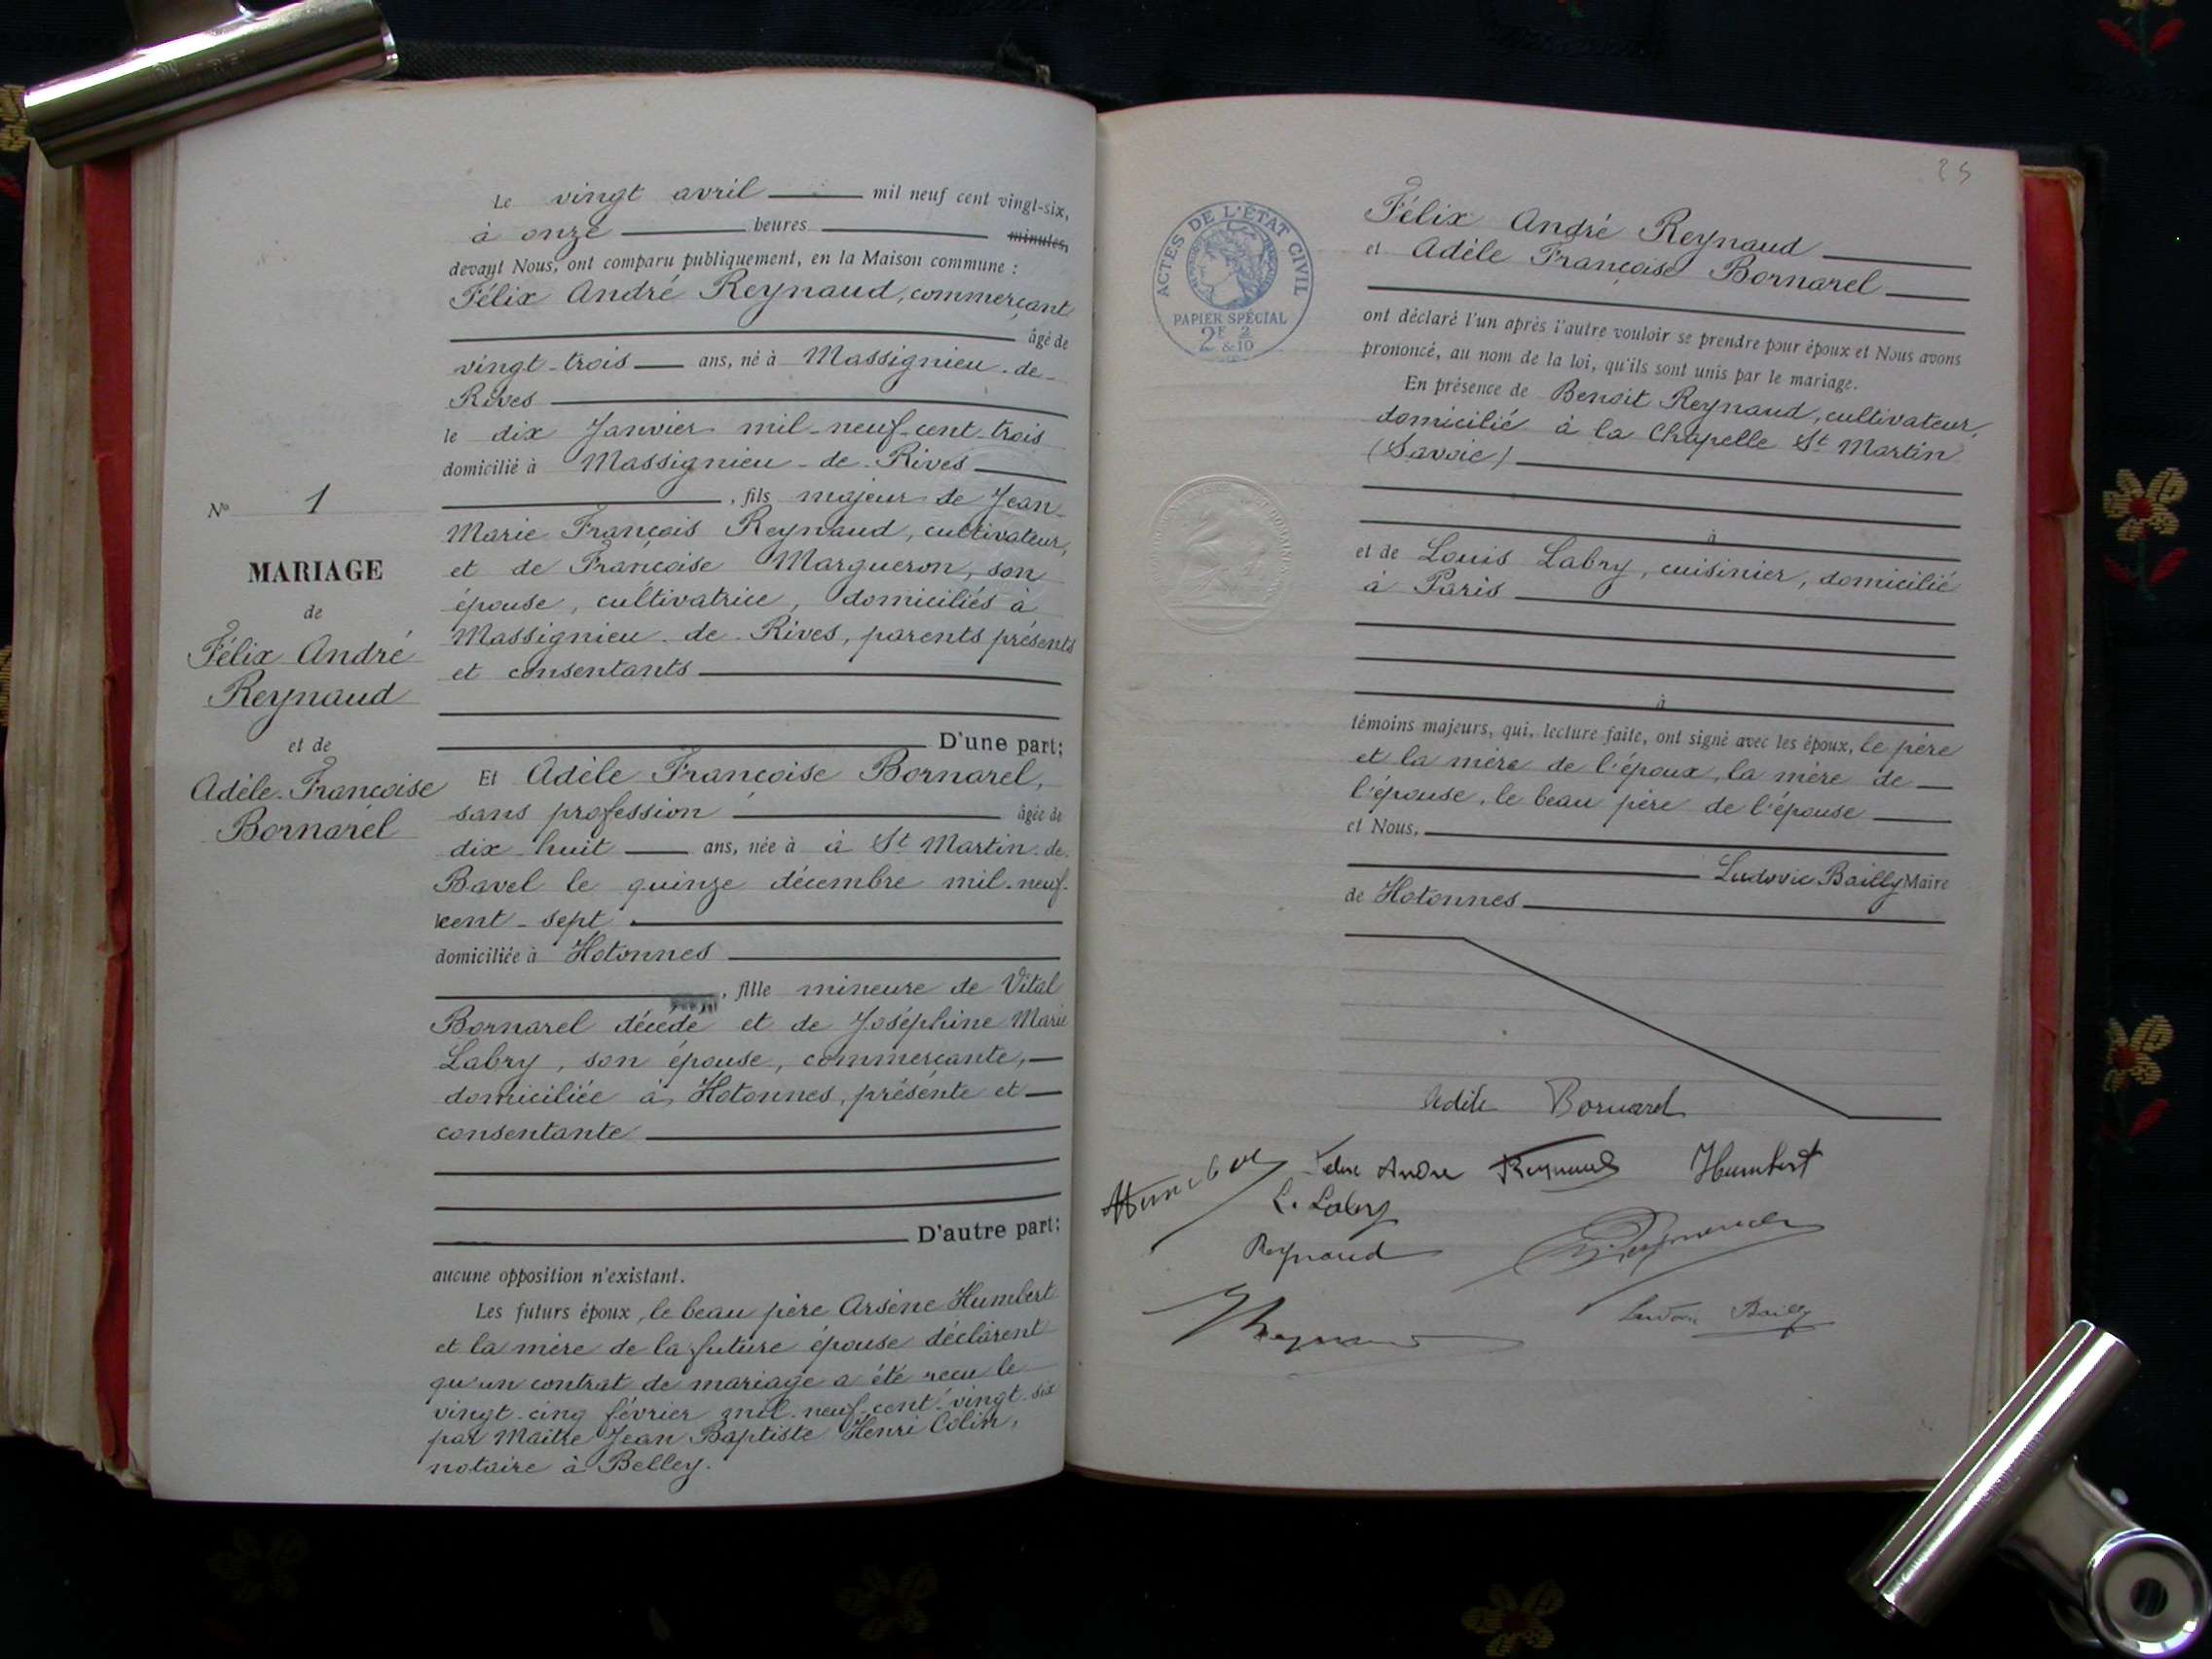 Le vingt avril mil neuf cent vingt-six,
à onze heures minutes,
devant Nous, ont comparu publiquement, en la Maison commune :
Félix André Reynaud, commerçant
âgé de
vingt-trois ans, né à Massignieu-de-
Rives
le dix Janvier mil-neuf-cent-trois
domicilié à Massignieu-de-Rives
, fils majeur de Jean-
Marie François Reynaud, cultivateur,
et de Françoise Margueron, son
épouse, cultivatrice, domiciliés à
Massignieu-de-Rives, parents présents
et consentants
D'une part;
Et Adèle Françoise Bornarel,
sans profession âgée de
dix-huit ans, née à à St Martin-de-
Bavel le quinze décembre mil-neuf-
cent-sept
domiciliée à Hotonnes
, fille mineure de Vital
Bornarel décédé et de Joséphine Marie
Labry, son épouse, commerçante,
domiciliée à Hotonnes, présente et
consentante
D'autre part;
aucune opposition n'existant.
Les futurs époux, le beau père Arsène Humbert
et la mère de la future épouse déclarent
qu'un contrat de mariage a été reçu le
vingt-cinq février mil-neuf-cent-vingt-six
par Maître Jean Baptiste Henri Colin,
notaire à Belley.
N° 1
MARIAGE
de
Félix André
Reynaud
et de
Adèle-Françoise
Bornarel
25
ACTES DE L'ÉTAT CIVIL
PAPIER SPÉCIAL
2F & 2/10
Félix André Reynaud
et Adèle Françoise Bornarel
ont déclaré l'un après l'autre vouloir se prendre pour époux et Nous avons
prononcé, au nom de la loi, qu'ils sont unis par le mariage.
En présence de Benoit Reynaud, cultivateur,
domicilié à la Chapelle St Martin
(Savoie)
à
et de Louis Labry, cuisinier, domicilié
à Paris
à
témoins majeurs, qui, lecture faite, ont signé avec les époux, le père
et la mère de l'époux, la mère de
l'épouse, le beau père de l'épouse
et Nous,
Ludovic Bailly Maire
de Hotonnes
Adèle Bornarel
Félix André Reynaud Humbert
L. Labry
Reynaud
Reynaud
Ludovic Bailly